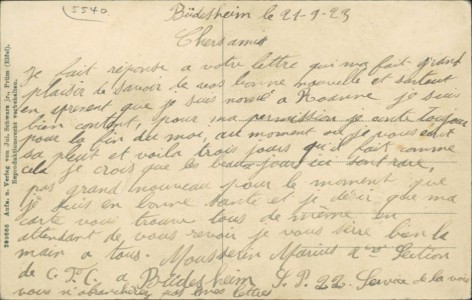 5540
Büdesheim le 21-9-23
Chers amis
Je fait réponse a votre lettre qui ma fait grand
plaisir de savoir de vos bonne nouvelle et surtout
en aprenent que je suis a Roanne je suis
bien content, pour ma permission je conte toujour
pour la fin du moi, au moment ou je vous
sa pleut et voila trois jours qu'il fait comme
cela je crois que les beau jour ici sont rare,
pas grand nouveau pour le moment, que
je suis en bonne santé et je désir que ma
carte vous trouve tous de meme en
attendant de vous revoir je vous serre bien la
main a tous. Mousserin Marius Section
de C.F.C. a Büdesheim S.P.22. Service de la voie
vous pas mes lettres
Aufn. u. Verlag von Jos. Schwarz jr., Prüm (Eifel).
Reproduktionsrecht vorbehalten.